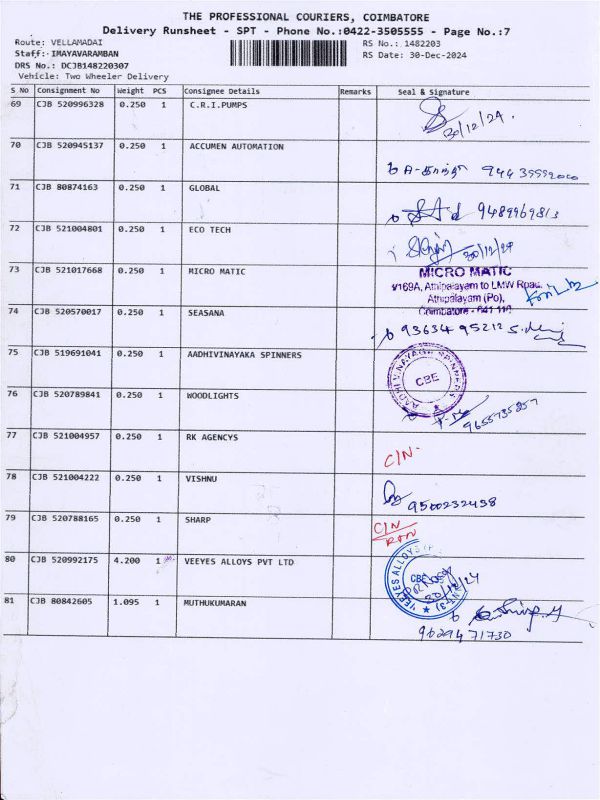 THE PROFESSIONAL COURIERS, COIMBATORE
Delivery Runsheet - SPT - Phone No.:0422-3505555 - Page No.:7
Route: VELLAMADAI
RS No.: 1482203
Staff: IMAYAVARAMBAN
RS Date: 30-Dec-2024
DRS No.: DCJB148220307
Vehicle: Two Wheeler Delivery
S No Consignment No Weight PCS Consignee Details Remarks Seal & Signature
69 CJB 520996328 0.250 1 C.R.I.PUMPS
30/12/24.
70 CJB 520945137 0.250 1 ACCUMEN AUTOMATION
71 CJB 80874163 0.250 1 GLOBAL
9489969813
72 CJB 521004801 0.250 1 ECO TECH
30/12/24
73 CJB 521017668 0.250 1 MICRO MATIC
MICRO MATIC
1/169A, Athipalayam to LMW Road,
Athipalayam (Po),
Coimbatore - 641 110
74 CJB 520570017 0.250 1 SEASANA
93634 95212
75 CJB 519691041 0.250 1 AADHIVINAYAKA SPINNERS
AADHI VINAYAGA SPINNERS
CBE
76 CJB 520789841 0.250 1 WOODLIGHTS
9655735857
77 CJB 521004957 0.250 1 RK AGENCYS
C/N-
78 CJB 521004222 0.250 1 VISHNU
9500232438
79 CJB 520788165 0.250 1 SHARP
C/N
RTN
80 CJB 520992175 4.200 1 VEEYES ALLOYS PVT LTD
VEEYES ALLOYS
CBE
30/12/24
81 CJB 80842605 1.095 1 MUTHUKUMARAN
9629471730